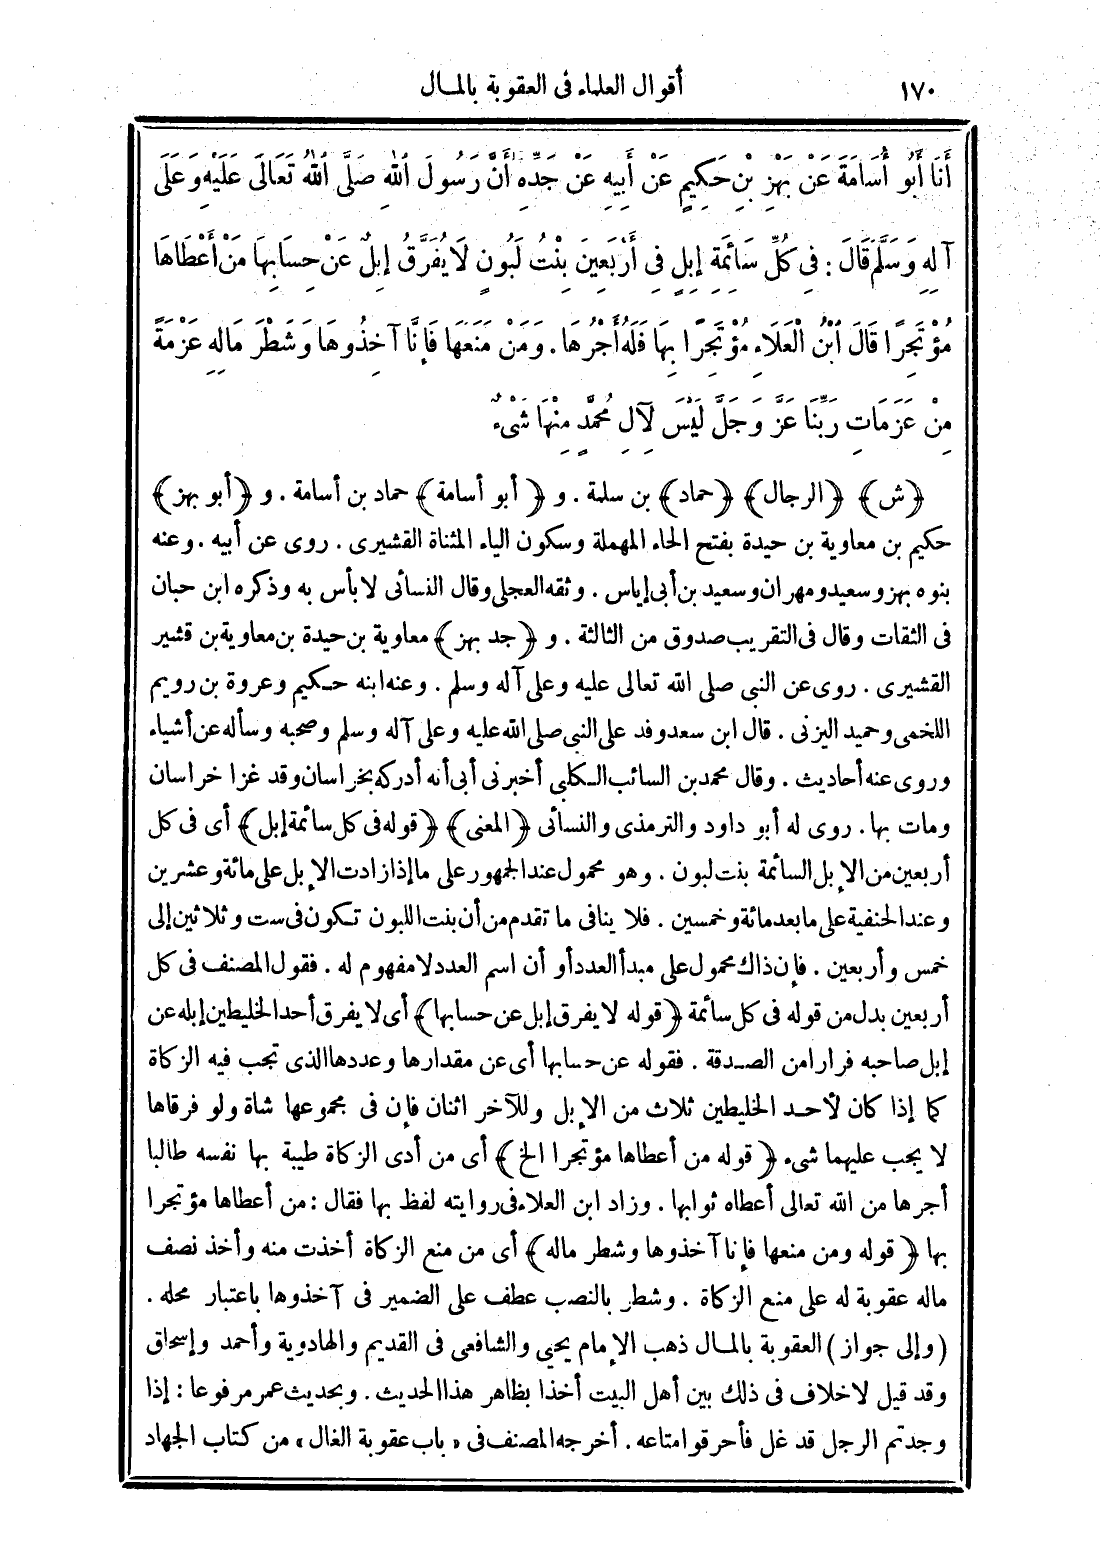 ١٧٠
أقوال العلماء فى العقوبة بالمـال
أَنَا أَبُو أُسَامَةَ عَنْ بَهْزِ بْنِ حَكِيمٍ عَنْ أَبِيهِ عَنْ جَدِّهِ أَنَّ رَسُولَ اللهِ صَلَّى اللهُ تَعَالَى عَلَيْهِ وَعَلَى
آلِهِ وَسَلَّمَ قَالَ : فِى كُلِّ سَائِمَةِ إِبِلٍ فِى أَرْبَعِينَ بِنْتُ لَبُونٍ لَا يُفَرَّقُ إِبِلٌ عَنْ حِسَابِهَا مَنْ أَعْطَاهَا
مُؤْتَجِرًا قَالَ ابْنُ الْعَلَاءِ مُؤْتَجِرًا بِهَا فَلَهُ أَجْرُهَا . وَمَنْ مَنَعَهَا فَإِنَّا آخِذُوهَا وَشَطْرَ مَالِهِ عَزْمَةً
مِنْ عَزَمَاتِ رَبِّنَا عَزَّ وَجَلَّ لَيْسَ لِآلِ مُحَمَّدٍ مِنْهَا شَىْءٌ
﴿ش﴾ ﴿الرجال﴾ ﴿حماد﴾ بن سلمة . و ﴿أبو أسامة﴾ حماد بن أسامة . و ﴿أبو بهز﴾
حكيم بن معاوية بن حيدة بفتح الحاء المهملة وسكون الياء المثناة القشيرى . روى عن أبيه . وعنه
بنوه بهز وسعيد ومهران وسعيد بن أبى إياس . وثقه العجلى وقال النسائى لا بأس به وذكره ابن حبان
فى الثقات وقال فى التقريب صدوق من الثالثة . و ﴿جد بهز﴾ معاوية بن حيدة بن معاوية بن قشير
القشيرى . روى عن النبى صلى الله تعالى عليه وعلى آله وسلم . وعنه ابنه حـكيم وعروة بن رويم
اللخمى وحميد اليزنى . قال ابن سعد وفد على النبى صلى الله عليه وعلى آله وسلم وصحبه وسأله عن أشياء
وروى عنه أحاديث . وقال محمد بن السائب الـكلبى أخبرنى أبى أنه أدركه بخراسان وقد غزا خراسان
ومات بها . روى له أبو داود والترمذى والنسائى ﴿المعنى﴾ ﴿قوله فى كل سائمة إبل﴾ أى فى كل
أربعين من الإبل السائمة بنت لبون . وهو محمول عند الجمهور على ما إذا زادت الإبل على مائة وعشرين
وعند الحنفية على ما بعد مائة وخمسين . فلا ينافى ما تقدم من أن بنت اللبون تكون فى ست وثلاثين إلى
خمس وأربعين . فإن ذاك محمول على مبدأ العدد أو أن اسم العدد لا مفهوم له . فقول المصنف فى كل
أربعين بدل من قوله فى كل سائمة ﴿قوله لا يفرق إبل عن حسابها﴾ أى لا يفرق أحد الخليطين إبله عن
إبل صاحبه فرارا من الصـدقة . فقوله عن حسابها أى عن مقدارها وعددها الذى تجب فيه الزكاة
كما إذا كان لأحـد الخليطين ثلاث من الإبل وللآخر اثنان فإن فى مجموعها شاة ولو فرقاها
لا يجب عليهما شىء ﴿قوله من أعطاها مؤتجرا الخ﴾ أى من أدى الزكاة طيبة بها نفسه طالبا
أجرها من الله تعالى أعطاه ثوابها . وزاد ابن العلاء فى روايته لفظ بها فقال : من أعطاها مؤتجرا
بها ﴿قوله ومن منعها فإنا آخذوها وشطر ماله﴾ أى من منع الزكاة أخذت منه وأخذ نصف
ماله عقوبة له على منع الزكاة . وشطر بالنصب عطف على الضمير فى آخذوها باعتبار محله .
(وإلى جواز) العقوبة بالمـال ذهب الإمام يحيى والشافعى فى القديم والهادوية وأحمد وإسحاق
وقد قيل لا خلاف فى ذلك بين أهل البيت أخذا بظاهر هذا الحديث . وبحديث عمر مرفوعا : إذا
وجدتم الرجل قد غل فأحرقوا متاعه . أخرجه المصنف فى «باب عقوبة الغال» من كتاب الجهاد